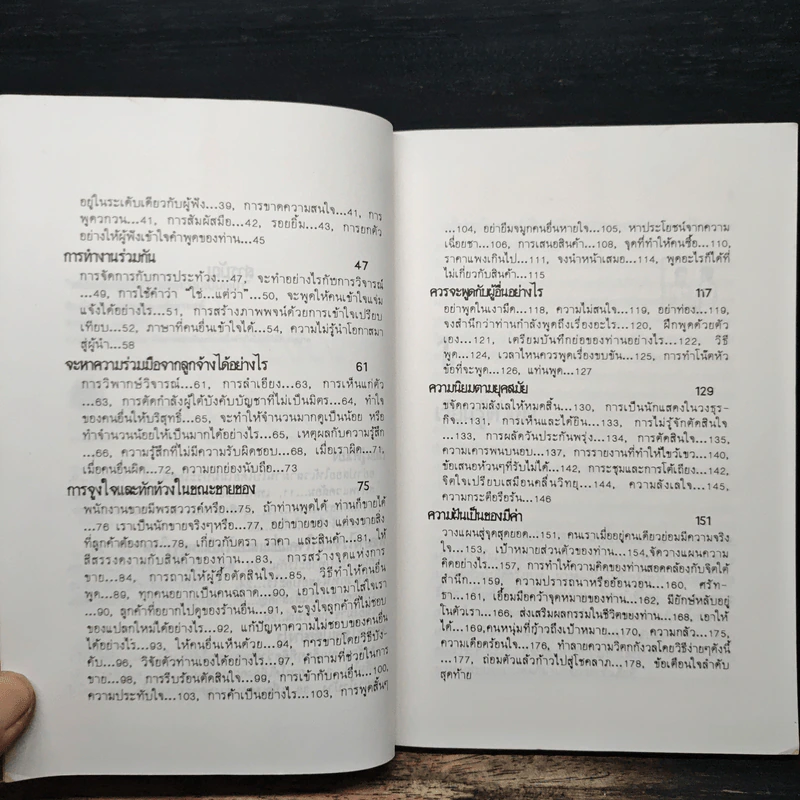 อยู่ในระเดับเดียวกับผู้ฟัง...39, การขาดความสนใจ...41, การ
พูดวกวน...41, การสัมผัสมือ...42, รอยยิ้ม...43, การยกตัว
อย่างให้ผู้ฟังเข้าใจคำพูดของท่าน...45
การทำงานร่วมกัน 47
การจัดการกับการประท้วง...47, จะทำอย่างไรกับการวิจารณ์
...49, การใช้คำว่า "ใช่...แต่ว่า"...50, จะพูดให้คนเข้าใจแจ่ม
แจ้งได้อย่างไร...51, การสร้างภาพพจน์ด้วยการเข้าใจเปรียบ
เทียบ...52, ภาษาที่คนอื่นเข้าใจได้...54, ความไม่รู้นำโอกาสมา
สู่ผู้นำ...58
จะหาความร่วมมือจากลูกจ้างได้อย่างไร 61
การวิพากษ์วิจารณ์...61, การลำเอียง...63, การเห็นแก่ตัว
...63, การตัดกำลังผู้ใต้บังคับบัญชาที่ไม่เป็นมิตร...64, ทำใจ
ของคนอื่นให้บริสุทธิ์...65, จะทำให้จำนวนมากดูเป็นน้อย หรือ
ทำจำนวนน้อยให้เป็นมากได้อย่างไร...65, เหตุผลกับความรู้สึก
...66, ความรู้สึกที่ไม่มีความรับผิดชอบ...68, เมื่อเราผิด...71,
เมื่อคนอื่นผิด...72, ความยกย่องนับถือ...73
การจูงใจและทักท้วงในขณะขายของ 75
พนักงานขายมีพรสวรรค์หรือ...75, ถ้าท่านพูดได้ ท่านก็ขายได้
...76 เราเป็นนักขายจริงๆหรือ...77, อย่าขายของ แต่จงขายสิ่ง
ที่ลูกค้าต้องการ...78, เกี่ยวกับตรา ราคา และสินค้า...81, ให้
สีสรรงดงามกับสินค้าของท่าน...83, การสร้างจุดแห่งการ
ขาย...84, การถามให้ผู้ซื้อตัดสินใจ...85, วิธีทำให้คนอื่น
พูด...89, ทุกคนอยากเป็นคนฉลาด...90, เอาใจเขามาใส่ใจเรา
...90, ลูกค้าที่อยากไปดูของร้านอื่น...91, จะจูงใจลูกค้าที่ไม่ชอบ
ของแปลกใหม่ได้อย่างไร...92, แก้ปัญหาความไม่ชอบของคนอื่น
ได้อย่างไร...93, ให้คนอื่นเห็นด้วย...94, การขายโดยวิธีบัง-
คับ...96, วิจัยตัวท่านเองได้อย่างไร...97, คำถามที่ช่วยในการ
ขาย...98, การรีบร้อนตัดสินใจ...99, การเข้ากับคนอื่น...100,
ความประทับใจ...103, การค้าเป็นอย่างไร...103, การพูดสั้นๆ
...104, อย่ายืมจมูกคนอื่นหายใจ...105, หาประโยชน์จากความ
เฉื่อยชา...106, การเสนอสินค้า...108, จุดที่ทำให้คนซื้อ...110,
ราคาแพงเกินไป...113, จงนำหน้าเสมอ...114, พูดอะไรก็ได้ที่
ไม่เกี่ยวกับสินค้า...115
ควรจะพูดกับผู้อื่นอย่างไร 117
อย่าพูดในเงามืด...118, ความไม่สนใจ...119, อย่าท่อง...119,
จงสำนึกว่าท่านกำลังพูดถึงเรื่องอะไร...120, ฝึกพูดด้วยตัว
เอง...121, เตรียมบันทึกย่อของท่านอย่างไร...122, วิธี
พูด...124, เวลาไหนควรพูดเรื่องขบขัน...125, การทำโน้ตหัว
ข้อที่จะพูด...126, แท่นพูด...127
ความนิยมตามยุคสมัย 129
ขจัดความลังเลให้หมดสิ้น...130, การเป็นนักแสดงในวงธุร-
กิจ...131, การเห็นและได้ยิน...133, การไม่รู้จักตัดสินใจ
...133, การผลัดวันประกันพรุ่ง...134, การตัดสินใจ...135,
ความเคารพนบนอบ...135, การรายงานที่ทำให้ไขว้เขว...140,
ข้อเสนอห้วนๆที่รับไม่ได้...142, การะชุมและการโต้เถียง...142,
จิตใจเปรียบเสมือนคลื่นวิทยุ...144, ความลังเลใจ...145,
ความกระตือรือร้น...146
ความฝันเป็นของมีค่า 151
วางแผนสู่จุดสุดยอด...151, คนเราเมื่ออยู่คนเดียวย่อมมีความจริง
ใจ...153, เป้าหมายส่วนตัวของท่าน...154,จัดวางแผนความ
คิดอย่างไร...157, การทำให้ความคิดของท่านสอดคล้องกับจิตใต้
สำนึก...159, ความปรารถนาหรืออ้อนวอน...160, ศรัท-
ธา...161, เอื้อมมือคว้าจุดหมายของท่าน...162, มียักษ์หลับอยู่
ในตัวเรา...166, ส่งเสริมผลกรรมในชีวิตของท่าน...168, เอาให้
ได้...169,คนหนุ่มที่ก้าวถึงเป้าหมาย...170, ความกลัว...175,
ความเดือดร้อนใจ...176, ทำลายความวิตกกังวลโดยวิธีง่ายๆดังนี้
...177, ถ่อมตัวแล้วก้าวไปสู่โชคลาภ...178, ข้อเตือนใจลำดับ
สุดท้าย